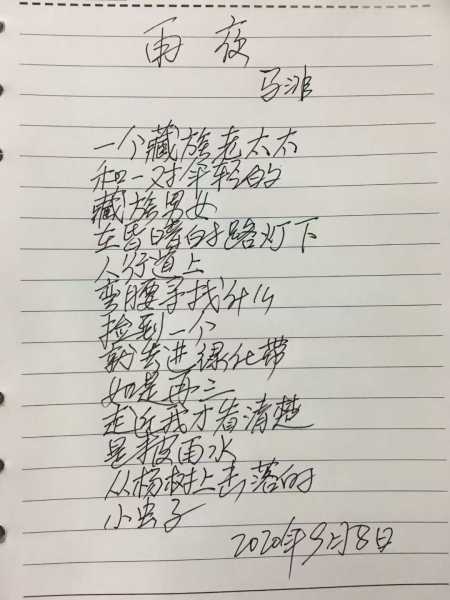 雨 夜
马非
一个藏族老太太
和一对年轻的
藏族男女
在昏暗的路灯下
人行道上
弯腰寻找什么
捡到一个
就丢进绿化带
如是再三
走近我才看清楚
是被雨水
从杨树上击落的
小虫子
2020年9月8日